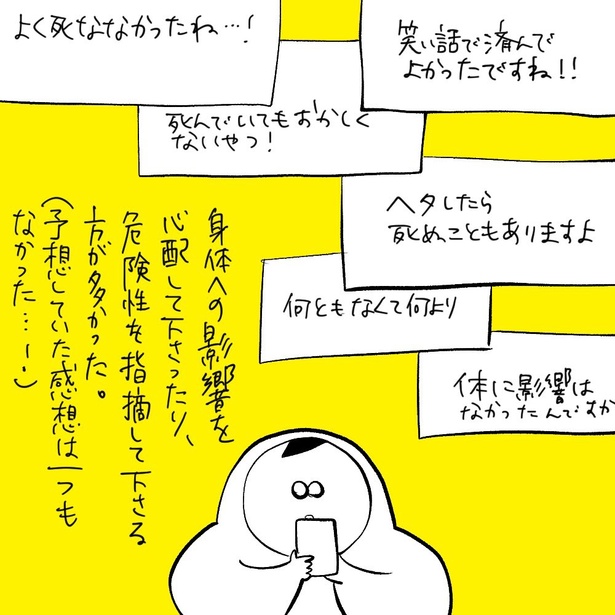 よく死ななかったね…!
笑い話で済んで
よかったですね!!
死んでいてもおかしく
ないやつ!
ヘタしたら
死ぬこともありますよ
何ともなくて何より
体に影響は
なかったんですか
身体への影響を
心配して下さったり、
危険性を指摘して下さる
方が多かった。
(予想していた感想は一つも
なかった…!)